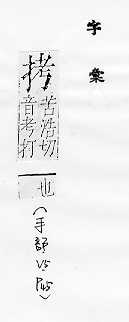 字彙
拷
苦浩切
音考打
一也
(手部 V5 P45)